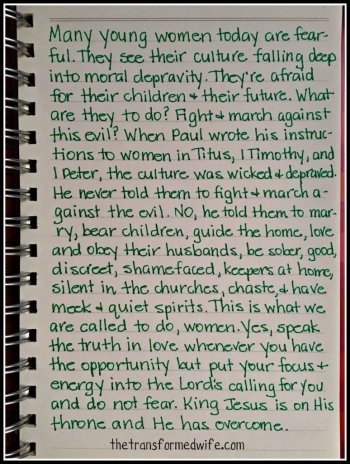 Many young women today are fear-
ful. They see their culture falling deep
into moral depravity. They're afraid
for their children & their future. What
are they to do? Fight & march against
this evil? When Paul wrote his instruc-
tions to women in Titus, 1 Timothy, and
1 Peter, the culture was wicked & depraved.
He never told them to fight & march a-
gainst the evil. NO, he told them to mar-
ry, bear children, guide the home, love
and obey their husbands, be sober, good,
discreet, shamefaced, keepers at home,
silent in the churches, chaste, & have
meek & quiet spirits. This is what we
are called to do, women. Yes, speak
the truth in love whenever you have
the opportunity but put your focus &
energy into the Lord's calling for you
and do not fear. King Jesus is on His
throne and He has overcome.
thetransformedwife.com